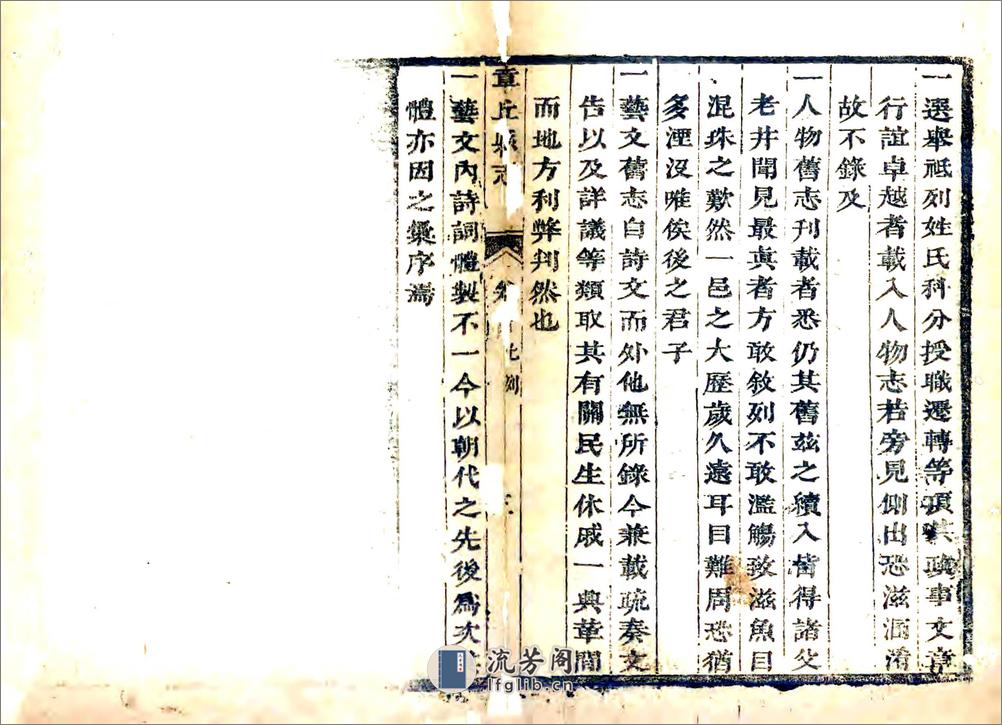 一選舉祗列姓氏科分授職遷轉等項其政事文章
行誼卓越者載入人物志若旁見側出恐滋混淆
故不錄及
一人物舊志刊載者悉仍其舊茲之續入皆得諸父
老井聞見最真者方敢敘列不敢濫觴致滋魚目
混珠之歎然一邑之大歷歲久遠耳目難周恐猶
多湮沒唯俟後之君子
一藝文舊志自詩文而外他無所錄今兼載疏奏文
告以及詳議等類取其有關民生休戚一興革間
而地方利弊判然也
章丘縣志
凡例
三
一藝文內詩詞體製不一今以朝代之先後爲次
體亦因之彙序焉
流芳阁
lfglib.cn